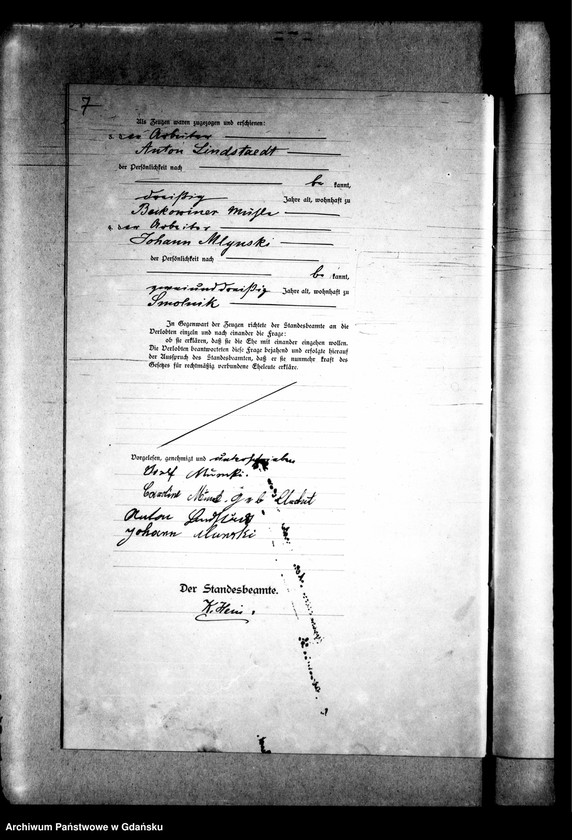 7
Als Zeugen waren zugezogen und erschienen:
3. der Arbeiter
Anton Lindstaedt
der Persönlichkeit nach
be kannt,
dreißig Jahre alt, wohnhaft zu
Bukowiner Mühle
4. der Arbeiter
Johann Mlynski
der Persönlichkeit nach
be kannt,
zweiunddreißig Jahre alt, wohnhaft zu
Smolnik
In Gegenwart der Zeugen richtete der Standesbeamte an die
Verlobten einzeln und nach einander die Frage:
ob sie erklären, daß sie die Ehe mit einander eingehen wollen.
Die Verlobten beantworteten diese Frage bejahend und erfolgte hierauf
der Ausspruch des Standesbeamten, daß er sie nunmehr kraft des
Gesetzes für rechtmäßig verbundene Eheleute erkläre.
Vorgelesen, genehmigt und unterschrieben
geb
Anton
Johann
Der Standesbeamte.
K. Hein.
Archiwum Państwowe w Gdańsku